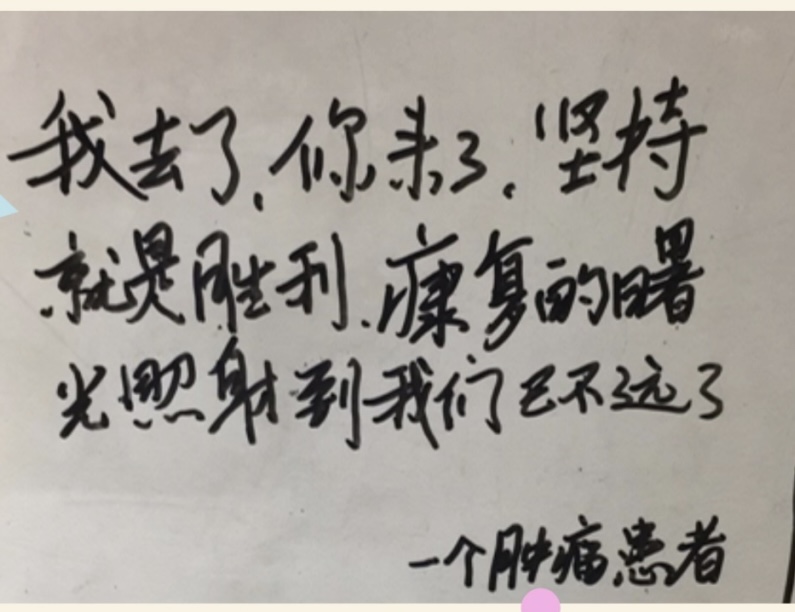 我去了,你来了,坚持
就是胜利,康复的曙
光照射到我们已不远了
一个肿瘤患者